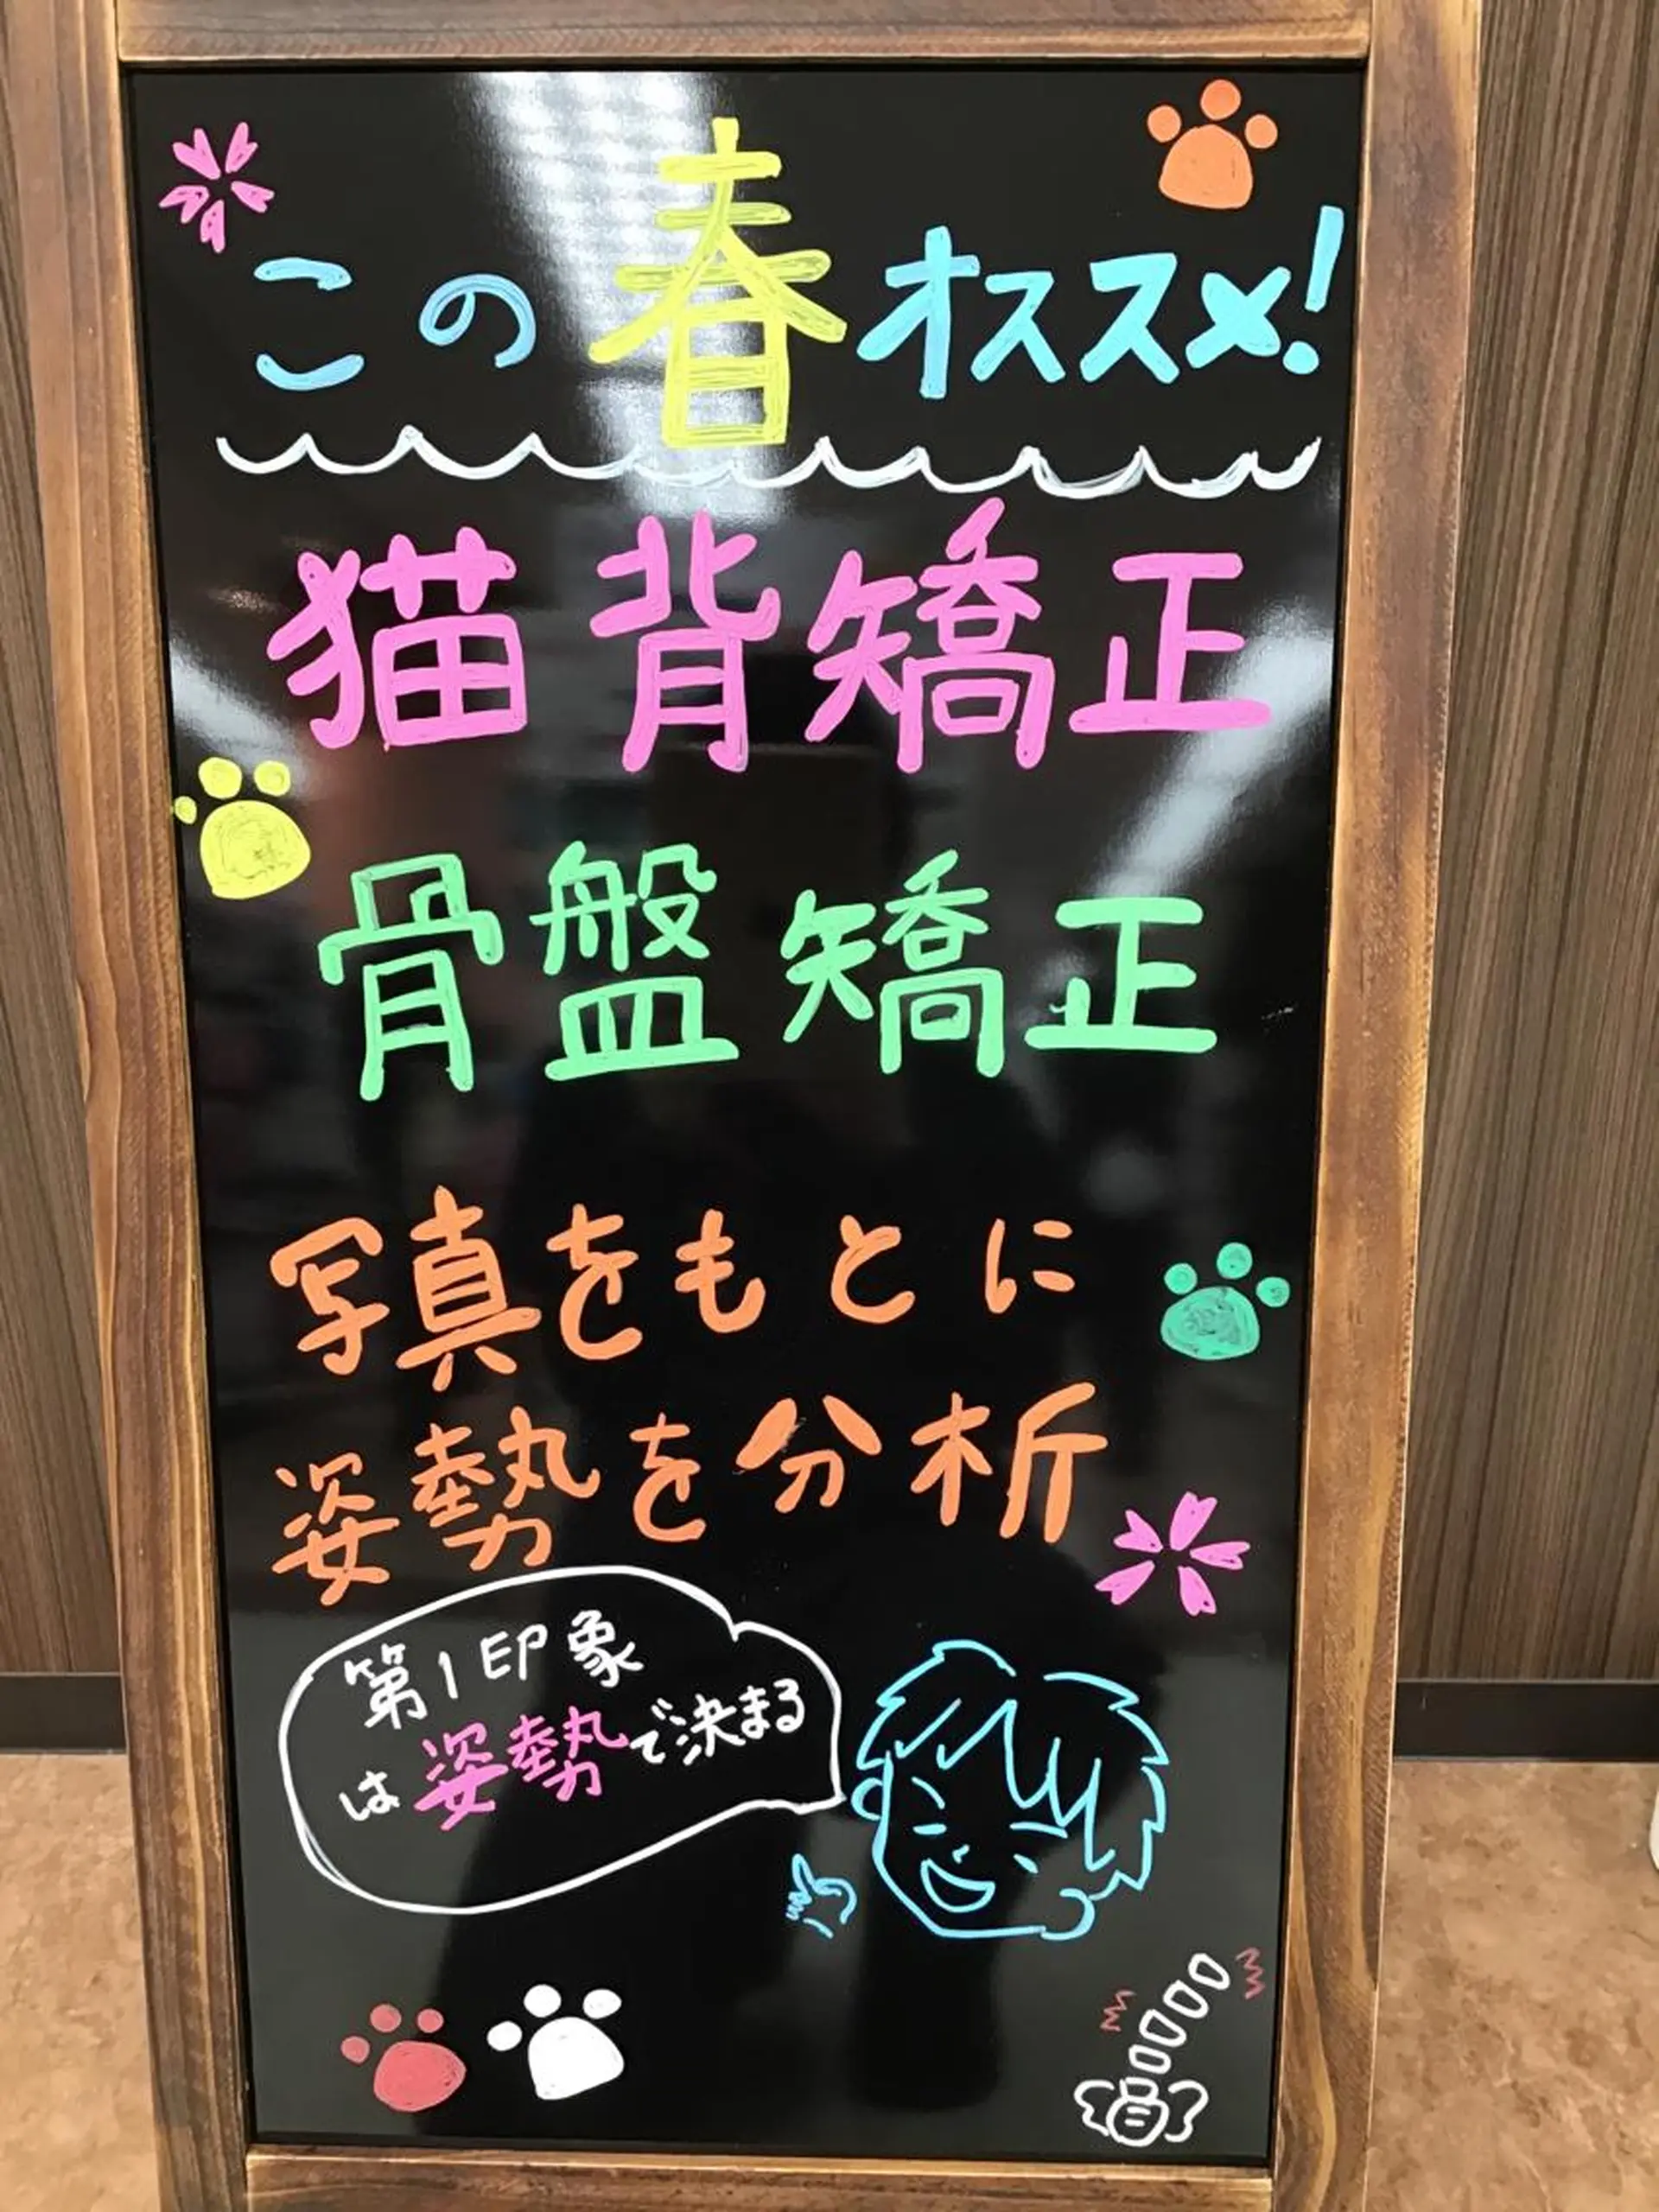 この春オススメ!
猫背矯正
骨盤矯正
写真をもとに
姿勢を分析
第1印象
は姿勢で決まる